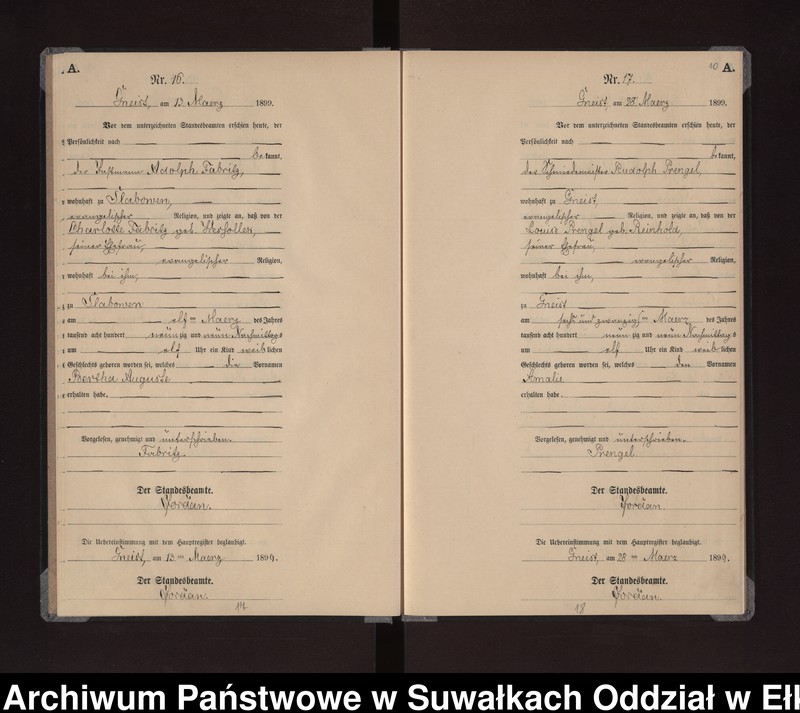 A.
Nr. 16.
Gneist, am 13 Maerz 1899.
Vor dem unterzeichneten Standesbeamten erschien heute, der
Persönlichkeit nach
be kannt,
der Instmann Adolph Fabritz,
wohnhaft zu Slabowen,
evangelischer Religion, und zeigte an, daß von der
Charlotte Fabritz geb.
seiner Ehefrau,
evangelischer Religion,
wohnhaft bei ihm,
zu Slabowen
am elf ten Maerz des Jahres
tausend acht hundert neun zig und neun Nachmittags
um elf Uhr ein Kind weib lichen
Geschlechts geboren worden sei, welches die Vornamen
Bertha Auguste
erhalten habe.
Vorgelesen, genehmigt und unterschrieben.
Fabritz.
Der Standesbeamte.
Jordan.
Die Uebereinstimmung mit dem Hauptregister beglaubigt.
Gneist, am 13 ten Maerz 1899.
Der Standesbeamte.
Jordan.
17
10
A.
Nr. 17.
Gneist, am 28 Maerz 1899.
Vor dem unterzeichneten Standesbeamten erschien heute, der
Persönlichkeit nach
be kannt,
der Schmiedemeister Rudolph Prengel,
wohnhaft zu Gneist,
evangelischer Religion, und zeigte an, daß von der
Louise Prengel geb. Reinhold,
seiner Ehefrau,
evangelischer Religion,
wohnhaft bei ihm,
zu Gneist
am sechs und zwanzigs ten Maerz des Jahres
tausend acht hundert neun zig und neun Nachmittags
um elf Uhr ein Kind weib lichen
Geschlechts geboren worden sei, welches den Vornamen
Amalie
erhalten habe.
Vorgelesen, genehmigt und unterschrieben.
Prengel
Der Standesbeamte.
Jordan.
Die Uebereinstimmung mit dem Hauptregister beglaubigt.
Gneist, am 28 ten Maerz 1899.
Der Standesbeamte.
Jordan.
18
Archiwum Państwowe w Suwałkach Oddział w Ełk